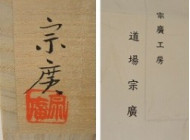 宗廣
宗廣工房
道場宗廣